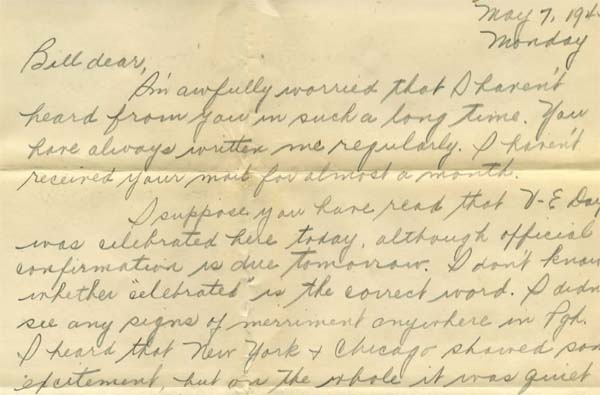 May 7, 194
Monday
Bill dear,
I'm awfully worried that I haven't
heard from you in such a long time. You
have always written me regularly. I haven't
received your mail for almost a month.
I suppose you have read that V-E Day
was celebrated here today, although official
confirmation is due tomorrow. I don't know
whether "celebrated" is the correct word. I didn
see any signs of merriment anywhere in Pgh.
I heard that New York & Chicago showed som
excitement, but on the whole it was quiet